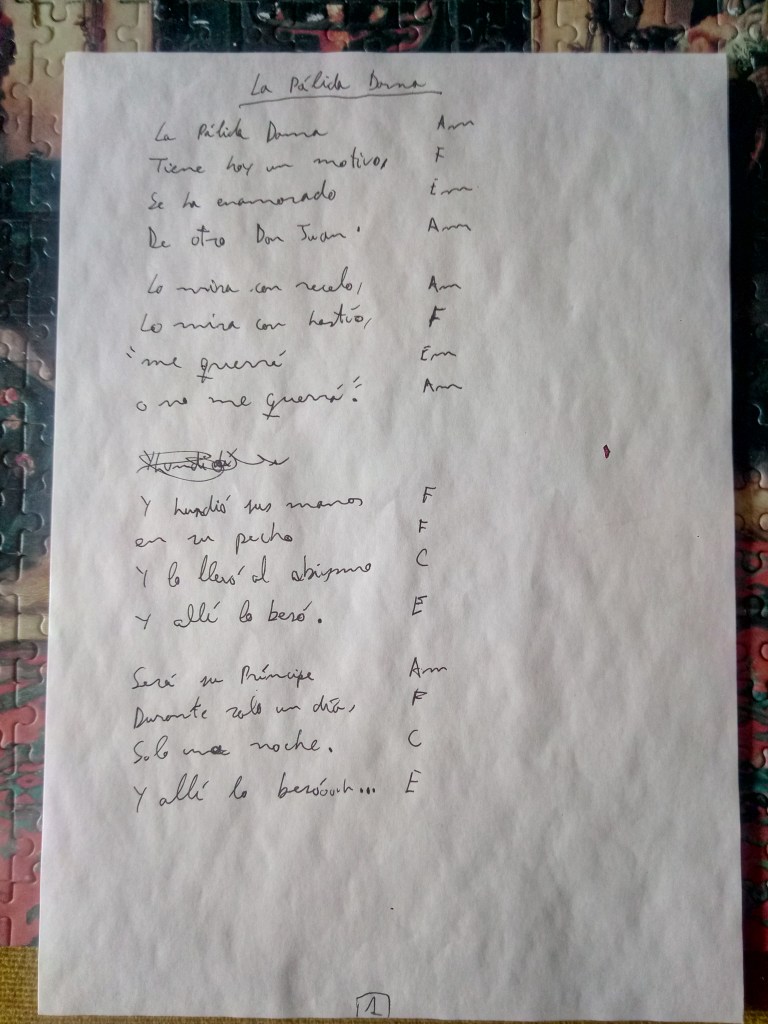 La Pálida Dama
La Pálida Dama Am
Tiene hoy un motivo, F
Se ha enamorado Em
De otro Don Juan. Am
Lo mira con recelo, Am
Lo mira con hastío, F
"me querrá Em
o no me querrá". Am
Y hundió sus manos F
en su pecho F
Y lo llevó al abismo C
Y allí lo besó. E
Será su Príncipe Am
Durante solo un día, F
Solo una noche. C
Y allí lo besóouh... E
1